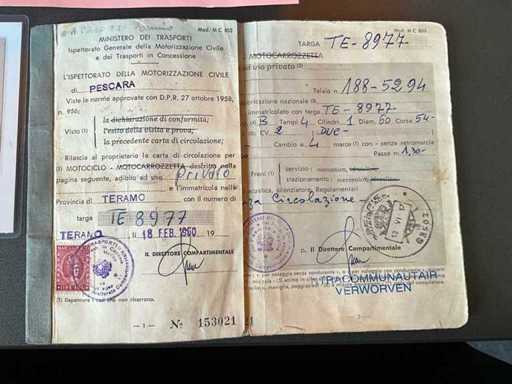 Mod. M C 802
MINISTERO DEI TRASPORTI
Ispettorato Generale della Motorizzazione Civile
e dei Trasporti in Concessione
L'ISPETTORATO DELLA MOTORIZZAZIONE CIVILE
di PESCARA
Viste le norme approvate con D.P.R. 27 ottobre 1958,
n. 956;
la dichiarazione di conformità;
Visto (1) l'esito della visita e prova;
la precedente carta di circolazione;
Rilascia al proprietario la carta di circolazione per
MOTOCICLO - MOTOCARROZZETTA descritto nella
pagina seguente, adibito ad uso privato
e l'immatricola nella
Provincia di TERAMO con il numero di
targa TE 8977
TERAMO 18 FEB. 1960 19
IL DIRETTORE COMPARTIMENTALE
(1) Depennare i casi che non ricorrono.
— 1 — N° 153021
Mod. M C 802
TARGA TE-8977
MOTOCARROZZETTA
ad uso privato (1)
Telaio n. 188-5294
nazionale di
immatricolato con targa TE-8977
B Tempi 4 Cilindri 1 Diam. 60 Corsa 54-
CV. 2 DUE
Cambio a 4 marce — con - senza retromarcia
Passo m 1,30-
Freni (1) servizio:
stazionamento:
silenziatore, Regolamentari
Circolazione
Il Direttore Compartimentale
EXTRACOMMUNAUTAIR
VERWORVEN